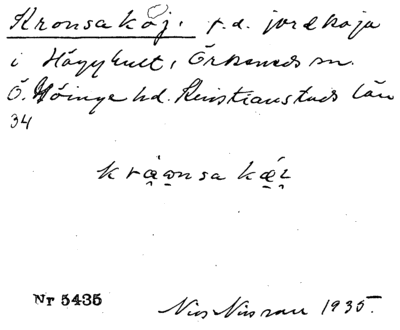 Kronsakoj. f.d. jordkoja
i Häggkult, Örkeneds sn.
Ö. Göinge hd. Kristianstads län
34
kråo̯nsa kǽi̯
Nr 5435
Nils Nilsson 1935.